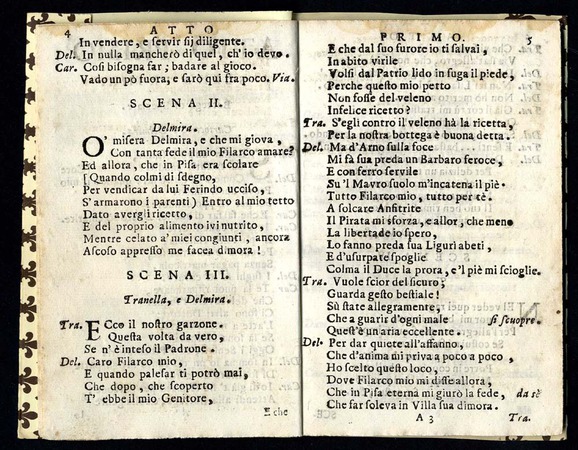 4 ATTO
In vendere, e servir sij diligente.
Del. In nulla mancherò di quel, ch'io devo.
Car. Così bisogna far; badare al gioco.
Vado un pò fuora, e sarò qui fra poco. Via.
SCENA II.
Delmira.
O' misera Delmira, e che mi giova,
Con tanta fede il mio Filarco amare?
Ed allora, che in Pisa era scolare
[Quando colmi di sdegno,
Per vendicar da lui Ferindo ucciso,
S'armarono i parenti) Entro al mio tetto
Dato avergli ricetto,
E del proprio alimento ivi nutrito,
Mentre celato a' miei congiunti, ancora
Ascoso appresso me facea dimora!
SCENA III.
Tranella, e Delmira.
Tra. Ecco il nostro garzone.
Questa volta da vero,
Se n' è inteso il Padrone.
Del. Caro Filarco mio,
E quando palesar ti potrò mai,
Che dopo, che scoperto
T' ebbe il mio Genitore,
E che
PRIMO. 5
E che dal suo furore io ti salvai,
In abito virile
Volsi dal Patrio lido in fuga il piede,
Perche questo mio petto
Non fosse del veleno
Infelice ricetto?
Tra. S'egli contro il veleno hà la ricetta,
Per la nostra bottega è buona detta.
Del. Ma d'Arno sulla foce
Mi fà sua preda un Barbaro feroce,
E con ferro servile
Su 'l Mavro suolo m'incatena il piè.
Tutto Filarco mio, tutto per tè.
A solcare Anfitrite
Il Pirata mi sforza, e allor, che meno
La libertade io spero,
Lo fanno preda sua Liguri abeti,
E d'usurpate spoglie
Colma il Duce la prora, e'l piè mi scioglie.
Tra. Vuole scior del sicuro;
Guarda gesto bestiale!
Sù state allegramente,
Che a guarir d'ogni male si scuopre.
Quest'è un aria eccellente.
Del. Per dar quiete all'affanno,
Che d'anima mi priva a poco a poco,
Ho scelto questo loco,
Dove Filarco mio mi disse allora,
Che in Pisa eterna mi giurò la fede, da sè
Che far soleva in Villa sua dimora.
A 3 Tra.